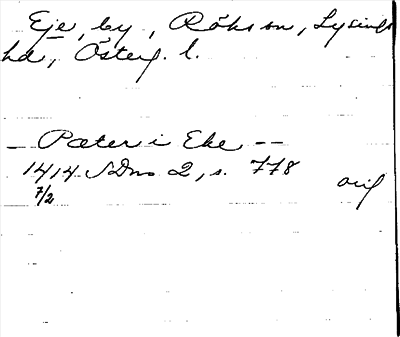 Eje, by, Röks sn, Lysings
hd, Österg. l.
— Pæter i Eke --
1414 SDns 2, s. 778
7/2 orig